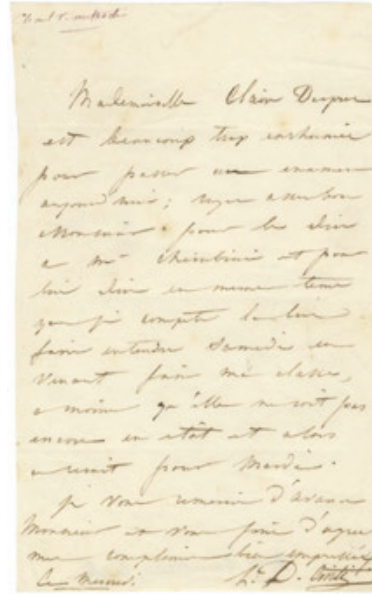 Mademoiselle Clair Dupre
est beaucoup trop enrhumée
pour passer un examen
aujourd'hui; soyez assez bon
Monsieur pour le dire
a Mr cherubini et pour
lui dire en meme tems
que je compte la lui
faire entendre Samedi en
venant faire ma classe,
a moins qu'elle ne soit pas
encore en état et alors
ce serait pour Mardi.
je vous remercie d'avance
Monsieur et vous prie d'agréer
mes complimens bien empressés
ce Mercredi. L. D.